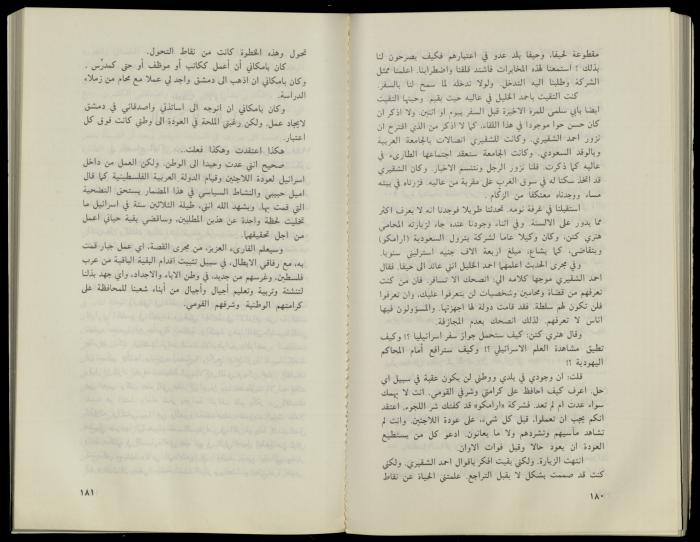 مقطوعة لحيفا، وحيفا بلد عدو في اعتبارهم فكيف يصرحون لنا
بذلك ؟ استمعنا لهذه المخابرات فاشتد قلقنا واضطرابنا. اعلمنا ممثل
الشركة وطلبنا اليه التدخل. ولولا تدخله لما سمح لنا بالسفر.
كنت التقيت باحمد الخليل في عاليه حيث يقيم. وحينها التقيت
ايضا بابي سلمى للمرة الاخيرة قبل السفر بيوم او اثنين. ولا اذكر ان
كان حسن حوا موجودا في هذا اللقاء، كما لا اذكر من الذي اقترح ان
نزور احمد الشقيري. وكانت للشقيري اتصالات بالجامعة العربية
وبالوفد السعودي. وكانت الجامعة ستعقد اجتماعها الطارىء في
عاليه كما ذكرت. قلنا نزور الرجل ونتنسم الاخبار. وكان الشقيري
قد اتخذ سكنا له في سوق الغرب على مقربة من عاليه. فزرناه في بيته
مساء ووجدناه معتكفا من الزكام.
استقبلنا في غرفة نومه. تحدثنا طويلا فوجدنا انه لا يعرف اكثر
مما يدور على الالسنة. وفي اثناء وجودنا عنده جاء لزيارته المحامي
هنري كتن، وكان وكيلا عاما لشركة بترول السعودية (ارامكو)
ويتقاضى، كما يشاع، مبلغ اربعة الاف جنيه استرليني سنويا.
وفي مجرى الحديث اعلمهما احمد الخليل اني عائد الى حيفا. فقال
احمد الشقيري موجها كلامه الي: انصحك الا تسافر. فان من كنت
تعرفهم من قضاة ومحامين وشخصيات لن يتعرفوا عليك، وان تعرفوا
فلن تكون لهم سلطة. فقد قامت دولة لها اجهزتها. والمسؤولون فيها
اناس لا تعرفهم. لذلك انصحك بعدم المجازفة.
وقال هنري كتن: كيف ستحمل جواز سفر اسرائيليا ؟! وكيف
تطيق مشاهدة العلم الاسرائيلي ؟! وكيف سترافع أمام المحاكم
اليهودية ؟!
قلت: ان وجودي في بلدي ووطني لن يكون عقبة في سبيل اي
حل. اعرف كيف احافظ على كرامتي وشرفي القومي. انت لا يهمك
سواء عدت ام لم تعد. فشركة «ارامكو» قد كفتك شر اللجوء. اعتقد
انكم يجب ان تعملوا، قبل كل شيء، على عودة اللاجئين. وانت لم
تشاهد مآسيهم وتشردهم ولا ما يعانون. ادعو كل من يستطيع
العودة ان يعود حالا وقبل فوات الاوان.
انتهت الزيارة. ولكني بقيت افكر باقوال احمد الشقيري. ولكني
كنت قد صممت بشكل لا يقبل التراجع. علمتني الحياة عن نقاط
١٨٠
تحول وهذه الخطوة كانت من نقاط التحول.
كان بامكاني أن أعمل ككاتب أو موظف أو حتى كمدرّس.
وكان بامكاني ان اذهب الى دمشق واجد لي عملا مع محام من زملاء
الدراسة.
وكان بامكاني ان اتوجه الى اساتذتي واصدقائي في دمشق
لايجاد عمل. ولكن رغبتي الملحة في العودة الى وطني كانت فوق كل
اعتبار.
هكذا اعتقدت وهكذا فعلت..
صحيح انني عدت وحيدا الى الوطن. ولكن العمل من داخل
اسرائيل لعودة اللاجئين وقيام الدولة العربية الفلسطينية كما قال
اميل حبيبي والنشاط السياسي في هذا المضمار يستحق التضحية
التي قمت بها. ويشهد الله انني، طيلة الثلاثين سنة في اسرائيل ما
تخليت لحظة واحدة عن هذين المطلبين، وساقضي بقية حياتي اعمل
من اجل تحقيقهما.
وسيعلم القارىء العزيز، من مجرى القصة، اي عمل جبار قمت
به، مع رفاقي الابطال، في سبيل تثبيت اقدام البقية الباقية من عرب
فلسطين، وغرسهم من جديد، في وطن الاباء والاجداد، واي جهد بذلنا
لتنشئة وتربية وتعليم أجيال وأجيال من أبناء شعبنا للمحافظة على
كرامتهم الوطنية وشرفهم القومي.
١٨١